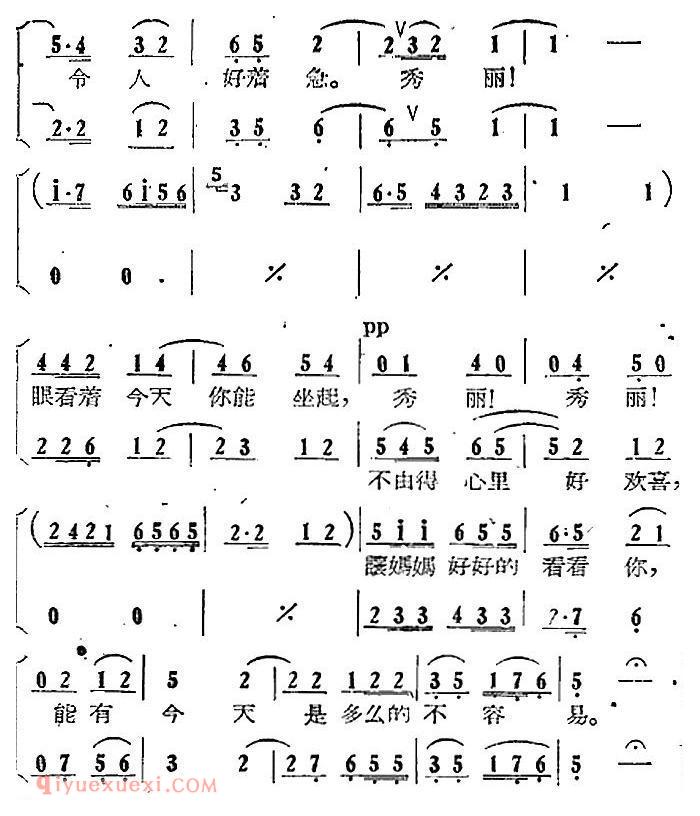 5·4 3 2 | 6 5 2 | 2 3 2 1 | 1 —
令 人 好着 急。 秀 丽！
2·2 1 2 | 3 5 6 | 6 5 1 | 1 —
(i·7 6i56 | 5 3 3 2 | 6·5 4323 | 1 1)
0 0 | ٪ | ٪ | ٪
pp
4 4 2 1 4 | 4 6 5 4 | 0 1 4 0 | 0 4 5 0
眼看着 今天 你能 坐起， 秀 丽！ 秀 丽！
2 2 6 1 2 | 2 3 1 2 | 5 4 5 6 5 | 5 2 1 2
不由得 心里 好 欢喜，
(2421 6565 | 2·2 1 2) | 5 i i 6 5 5 | 6·5 2 1
讓媽媽 好好的 看看 你，
0 0 | ٪ | 2 3 3 4 3 3 | ?·7 6
0 2 1 2 | 5 2 | 2 2 1 2 2 | 3 5 1 7 6 | 5 —
能有 今 天 是 多么的 不 容 易。
0 7 5 6 | 3 2 | 2 7 6 5 5 | 3 5 1 7 6 | 5 —
qiyuexuexi.com